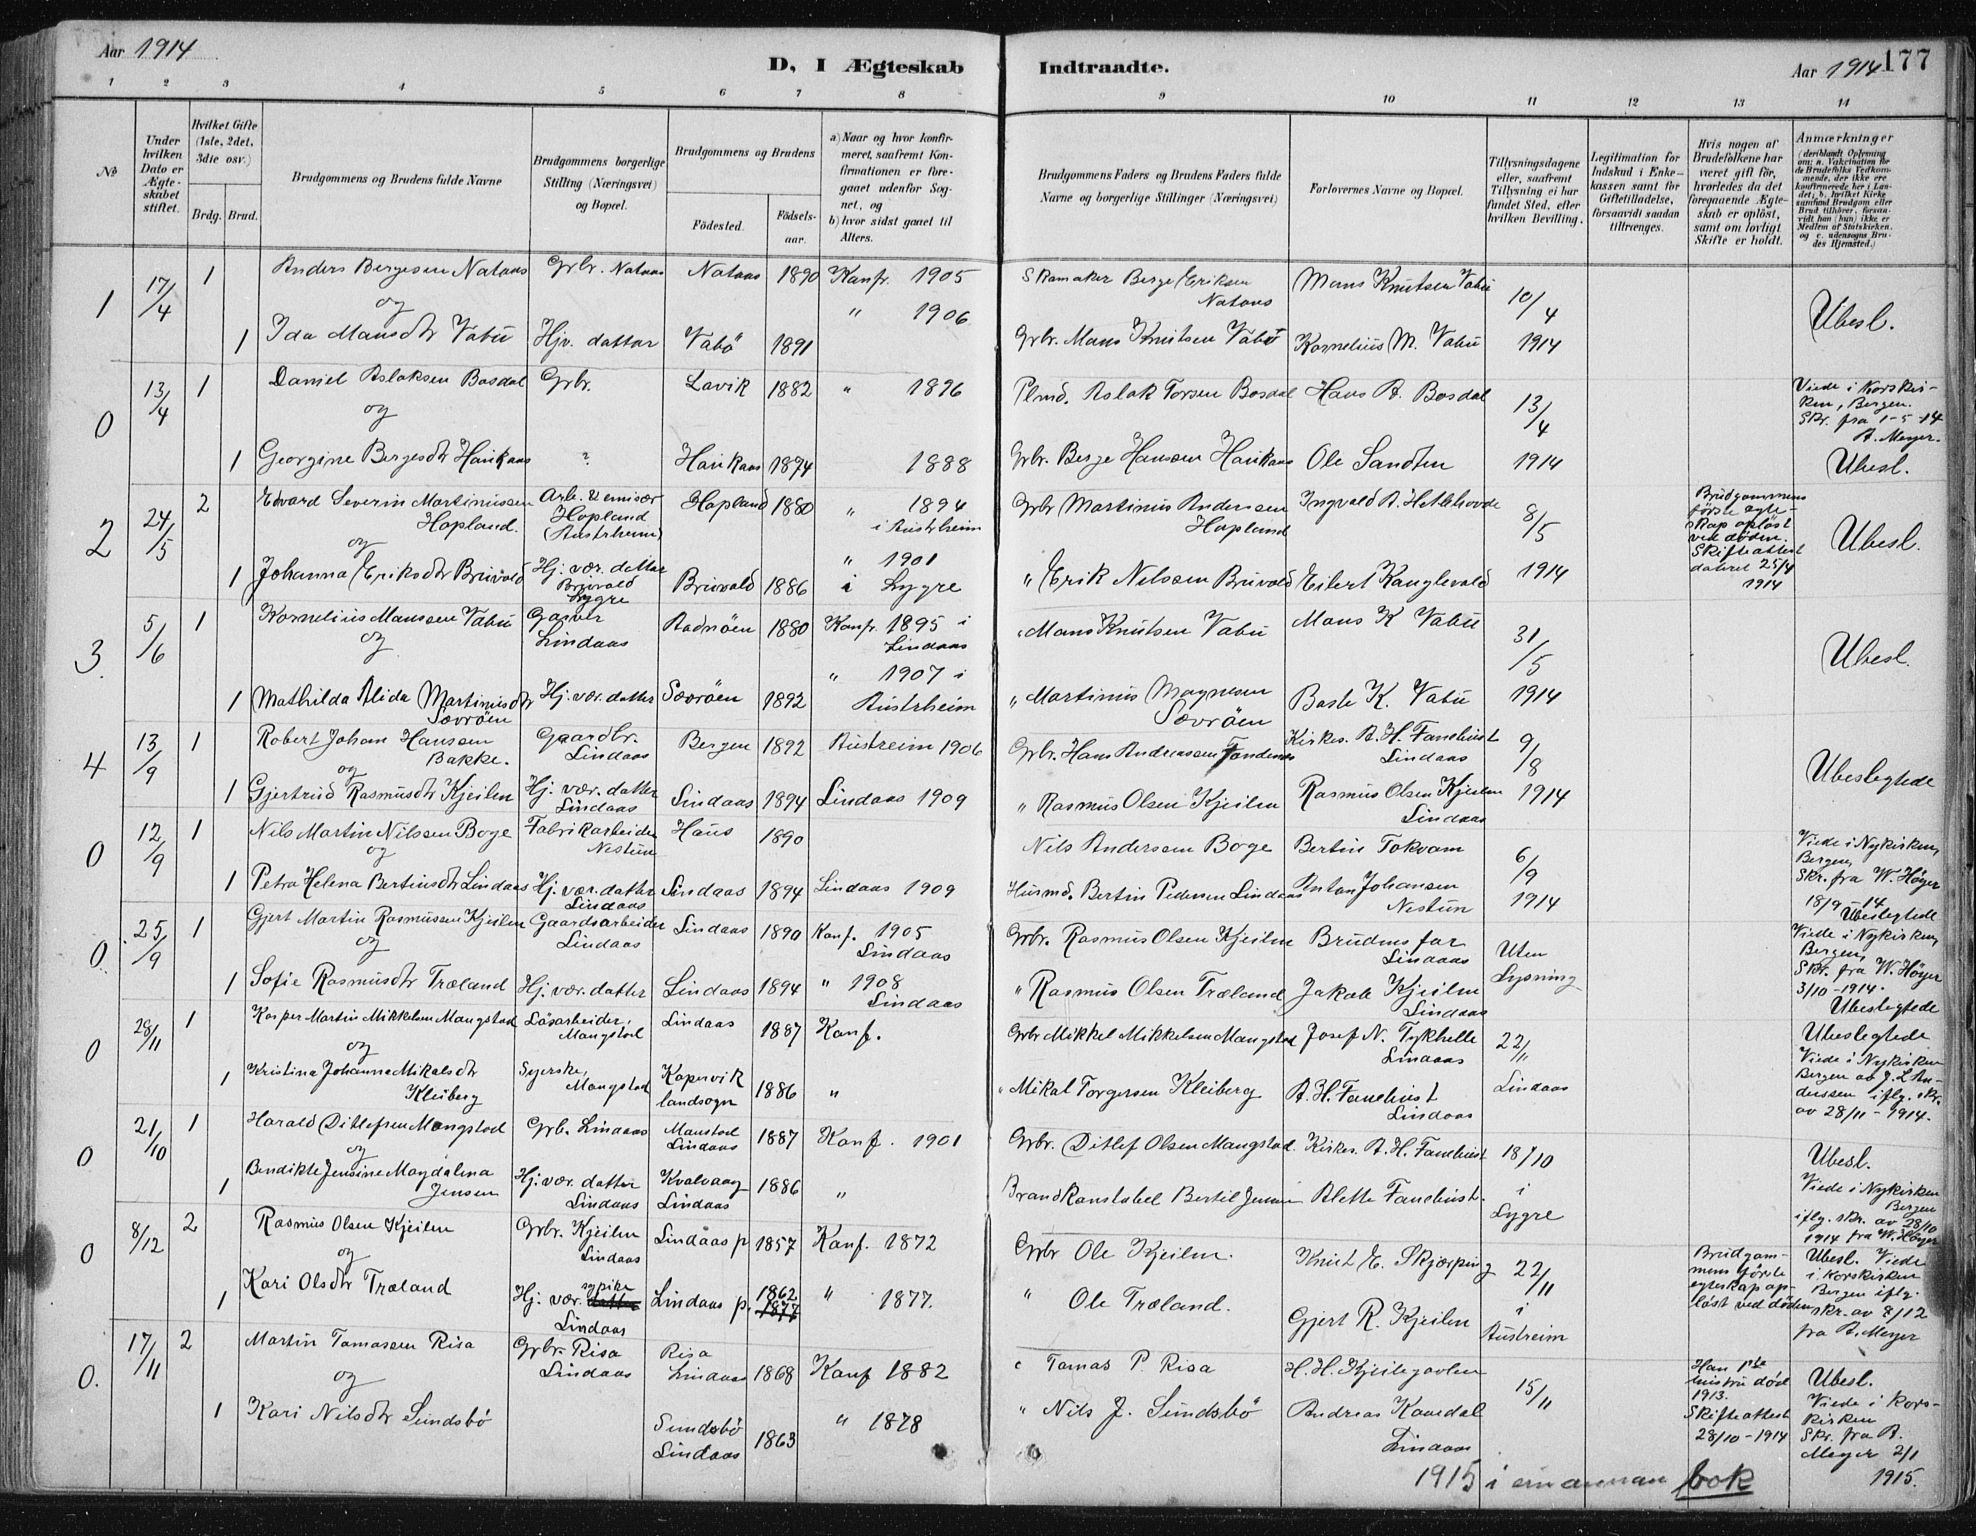 Aar 1914
D, I Ægteskab Indtraadte.
Aar 1914 177
1 2 3 4 5 6 7 8 9 10 11 12 13 14
No
Under hvilken Dato er Ægteskabet stiftet.
Hvilket Gifte (1ste, 2det, 3die osv.)
Brdg. Brud.
Brudgommens og Brudens fulde Navne
Brudgommens borgerlige Stilling (Næringsvei) og Bopæl.
Brudgommens og Brudens
Fødested. Fødselsaar.
a) Naar og hvor konfirmeret, saafremt Konfirmationen er foregaaet udenfor Sognet, og
b) hvor sidst gaaet til Alters.
Brudgommens Faders og Brudens Faders fulde Navne og borgerlige Stillinger (Næringsvei)
Forlovernes Navne og Bopæl.
Tillysningsdagene eller, saafremt Tillysning ei har fundet Sted, efter hvilken Bevilling.
Legitimation for Indskud i Enkekassen samt for Giftetilladelse, forsaavidt saadan tiltrænges.
Hvis nogen af Brudefolkene har været gift før, hvorledes da det foregaaende Ægteskab er opløst, samt om lovligt Skifte er holdt.
Anmærkninger
1 17/4 1 Anders Bergesen Nataas Grbr. Nataas Nataas 1890 Konfr. 1905 Skomaker Berge Eriksen Nataas Mons Knutsen Vabu 10/4
og " 1906 Ubesl.
1 Ida Mansdtr Vabu Hjv. dattar Vabö 1891 Grbr. Mans Knutsen Vabö Kornelius M. Vabu 1914
0 13/4 1 Daniel Aslaksen Bosdal Grbr. Lavik 1882 " 1896 Plmd. Aslak Torsen Bosdal Hans A. Bosdal 13/4 Viede i Korskirken, Bergen. Skr. fra 1-5-14 A. Meyer.
og
1 Georgine Bergesdtr Haukaas ? Haukaas 1874 1888 Grbr. Berge Hansen Haukaas Ole Sandten 1914 Ubesl.
2 24/5 2 Edvard Severin Martinussen Hopland. Arb. & emisær Hopland (Austrheim) Hopland 1880 " 1894 i Austrheim Grbr Martinus Anderssen Hopland Ingvald A. Hetlehovde 8/5 Brudgommens första egteskap oplöst ved döden. Skifteattest dateret 25/4 1914 Ubesl.
og
1 Johanna Eriksdtr Bruvold Hj. vær. dattar Bruvold Lygre Bruvold 1886 " 1901 i Lygre " Erik Nilssen Bruvold Eilert Kanglevold 1914
3. 5/6 1 Kornelius Manssen Vabu Lindaas Radnöen 1880 Konfr. 1895 i Lindaas " Mans Knutsen Vabu Mans K Vabu 31/5 Ubesl.
og
1 Mathilda Alida Martinusdtr Sævröen Hj. vær. datter Sævröen 1892 " 1907 i Austrheim " Martinus Magnesen Sævröen K. Vabu 1914
4 13/9 1 Robert Johan Hanssen Bakke. Gaardbr. Lindaas Bergen 1892 Austreim 1906 Grbr. Hans Andreassen Kirkes. A. H. Fanebust Lindaas 9/8 Ubeslegtede
og
1 Gjertrud Rasmusdtr Kjeilen Hj. vær. datter Lindaas Lindaas 1894 Lindaas 1909 " Rasmus Olsen Kjeilen Rasmus Olsen Kjeilen Lindaas 1914
0 12/9 1 Nils Martin Nilssen Boge Fabrikarbeider Nestun Haus 1890 Nils Anderssen Boge Bertin Tokvam 6/9 Viede i Nykirken, Bergen, Skr. fra W. Höyer 18/9-14 Ubeslegtede
og
1 Petra Helena Bertinsdtr Lindaas Hj. vær. datter Lindaas Lindaas 1894 Lindaas 1909 Husmd. Bertin Pedersen Lindaas Anton Johansen Nestun 1914
0 25/9 1 Gjert Martin Rasmussen Kjeilen Gaardsarbeider Lindaas Lindaas 1890 Konf. 1905 Lindaas Grbr. Rasmus Olsen Kjeilen Brudens far Lindaas Uten Lysning Viede i Nykirken, Bergen, Skr. fra W. Höyer 3/10-1914. Ubeslegtede
og
1 Sofie Rasmusdtr Træland Hj. vær. datter Lindaas 1894 " 1908 Lindaas " Rasmus Olsen Træland Jakob Kjeilen Lindaas
0 28/11 1 Kasper Martin Mikkelsen Mangstad Lösarbeider, Mangstad Lindaas 1887 Konf. Grbr Mikkel Mikkelsen Mangstad Josef N. Tykhelle Lindaas 22/11 Lindaas Ubeslegtede Viede i Nykirken Bergen av J. L. Anderssen iflg. skr. av 28/11-1914.
og
1 Kristina Johanna Mikalsdtr Kleiberg Syerske, Mangstad Kopervik landsogn 1886 " " Mikal Torgersen Kleiberg A. H. Fanebust Lindaas
0 21/10 1 Harald Ditlefsen Mangstad Grb. Lindaas Manstad Lindaas 1887 Konf. 1901 Grbr. Ditlef Olsen Mangstad. Kirkes. A. H. Fanebust 18/10 i Lygre Ubesl. Viede i Nykirken Bergen iflg. skr. av 28/10 1914 fra W. Höyer
og
1 Bendikte Jensine Magdalena Jensen Hj. vær. datter Lindaas Kvalvaag Lindaas 1886 " Brandkonstabel Bertil Jensen Alette Fanebust.
0 8/12 2 Rasmus Olsen Kjeilen Grbr. Kjeilen Lindaas Lindaas p 1857 Konf. 1872 Grbr Ole Kjeilen. Knut E. Skjærping 22/11 i Austreim Brudgommens förste egteskap oplöst ved döden Ubesl. Viede i Korskirken Bergen iflg. skr. av 8/12 fra A. Meyer
og
1 Kari Olsdtr Træland Hj. vær. sypike datter Lindaas Lindaas p. 1862 1877 " 1877. " Ole Træland. Gjert R. Kjeilen
0. 17/11 2 Martin Tomassen Risa Grbr. Risa Lindaas Risa Lindaas 1868 Konf 1882 Tomas P. Risa H. H. Kjeilegavlen 15/11 Han 1ste hustru död 1913. Skifteattest 28/10-1914 Ubesl. Viede i Korskirken Skr. fra A. Meyer 2/1 1915.
og
1 Kari Nilsdtr Sundsbö Sundsbö Lindaas 1863 " 1878 " Nils J. Sundsbö Andreas Lindaas
1915 i ein annan bok